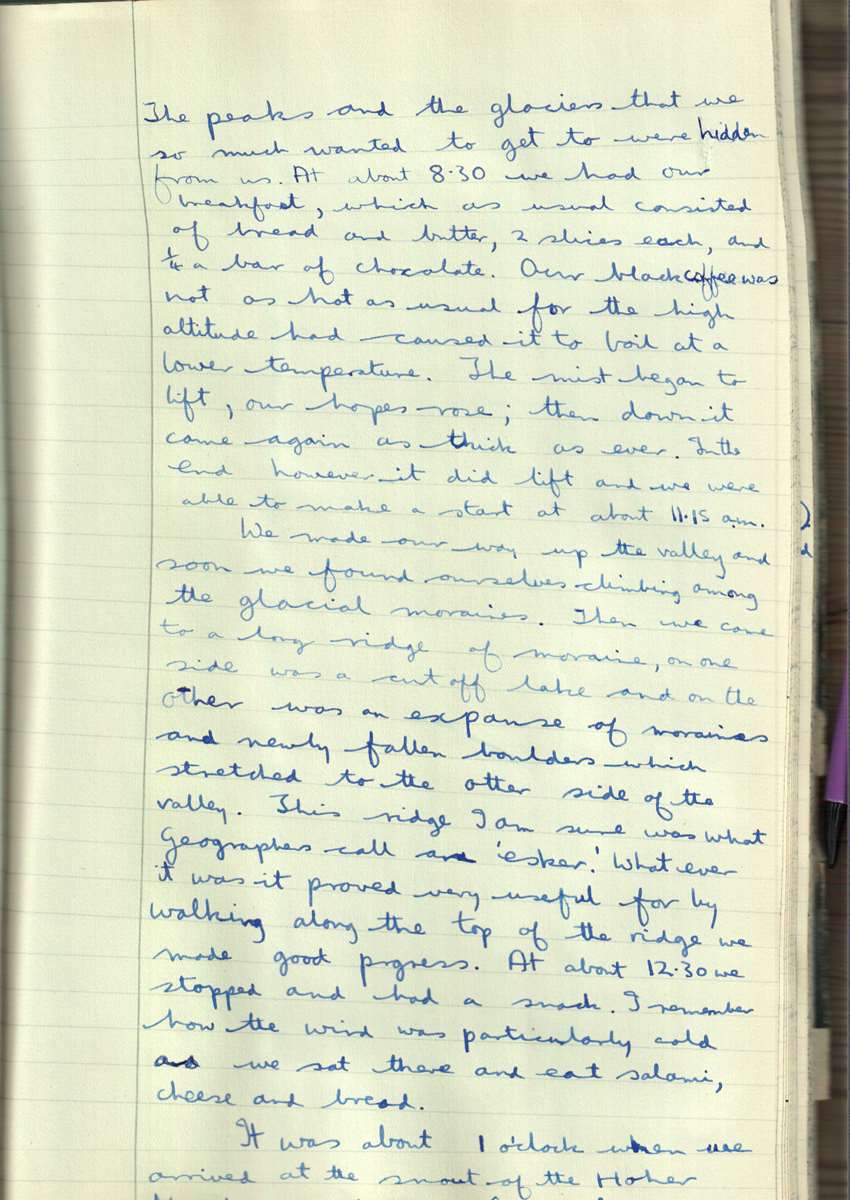 The peaks and the glaciers that we
so much wanted to get to were hidden
from us. At about 8.30 we had our
breakfast, which as usual consisted
of bread and butter, 2 slices each, and
1/4 a bar of chocolate. Our black coffee was
not as hot as usual for the high
altitude had caused it to boil at a
lower temperature. The mist began to
lift, our hopes rose; then down it
came again as thick as ever. In the
end however it did lift and we were
able to make a start at about 11.15 a.m.
We made our way up the valley and
soon we found ourselves climbing among
the glacial moraines. Then we came
to a long ridge of moraine, on one
side was a cut off lake and on the
other was an expanse of moraines
and newly fallen boulders which
stretched to the other side of the
valley. This ridge I am sure was what
Geographers call an 'esker.' What ever
it was it proved very useful for by
walking along the top of the ridge we
made good progress. At about 12.30 we
stopped and had a snack. I remember
how the wind was particularly cold
as we sat there and eat salami,
cheese and bread.
It was about 1 o'clock when we
arrived at the snout of the Hoher